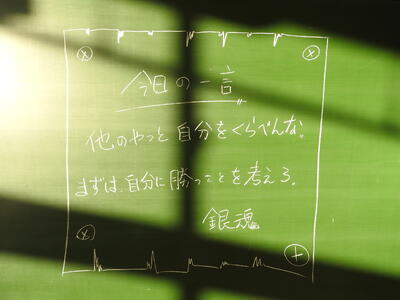 今日の一言
他のやつと自分をくらべんな。
まずは、自分に勝つことを考えろ。
銀魂